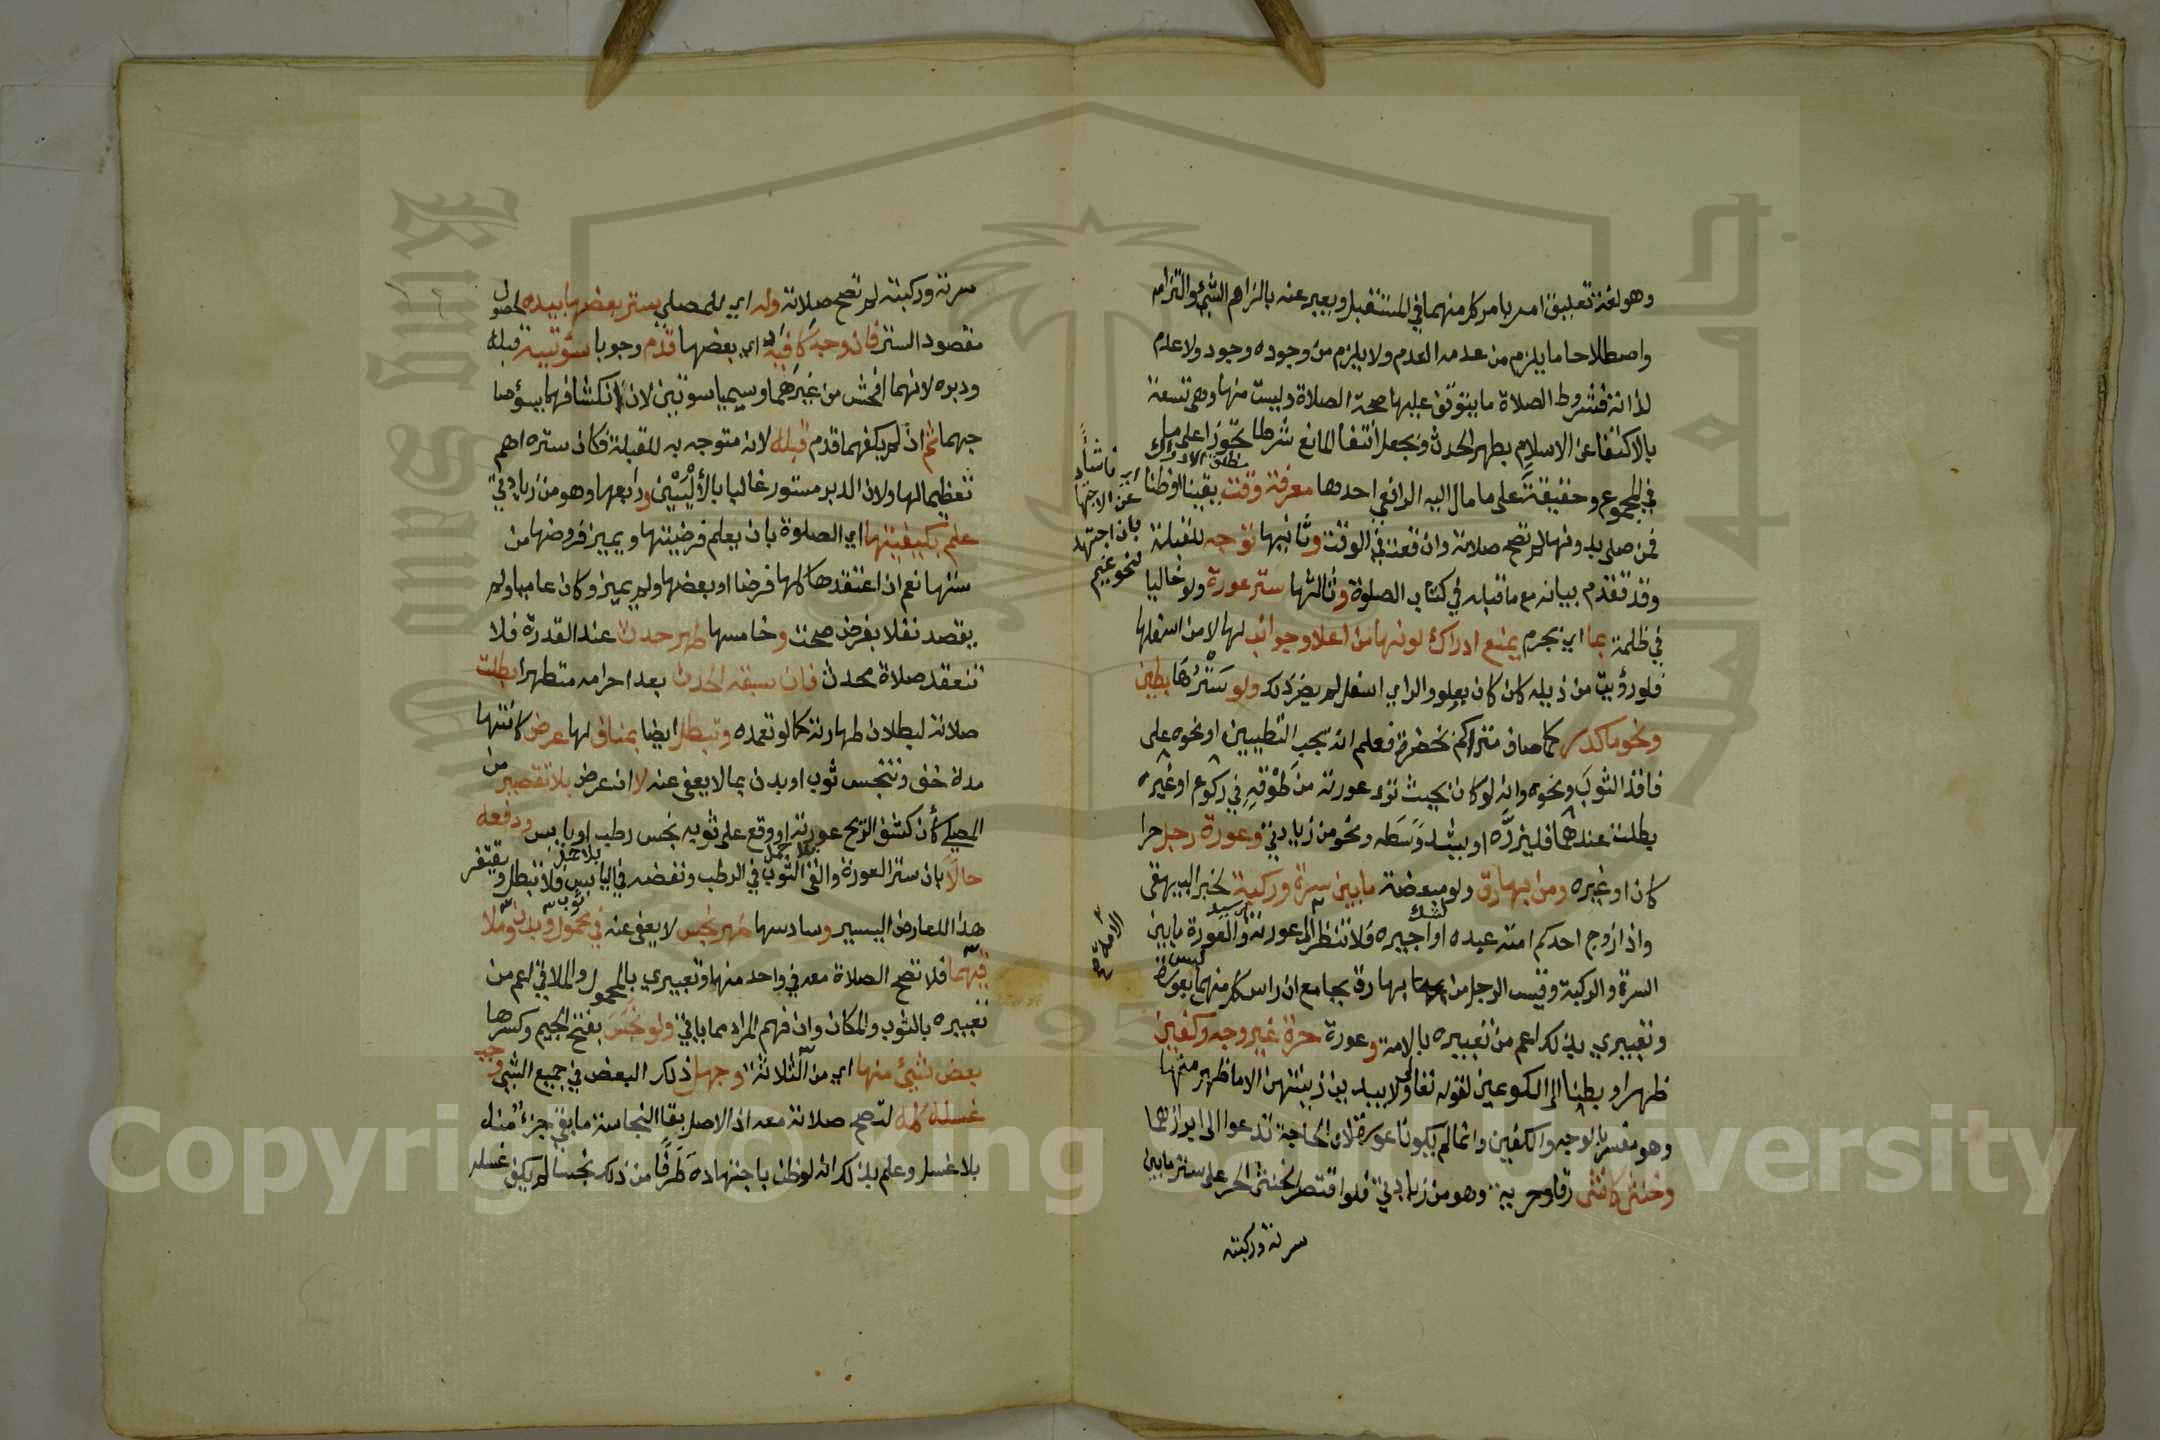 وهو لغة تعليق امر بامر كل منهما في المستقبل ويعبر عنه بالزام الشيء والتزامه
واصطلاحا ما يلزم من عدمه العدم ولا يلزم من وجوده وجود ولا عدم
لذاته فشروط الصلاة ما يتوقف عليها صحة الصلاة وليست منها وهي تسعة
بالاكتفا عن الاسلام بطهر الحدث وبجعل انتفا المانع شرطا تجوزا على ما
في المجموع وحقيقة على ما مال اليه الرافعي احدها معرفة وقت يقينا او ظنا
فمن صلى بدونها لم تصح صلاته وان وقعت في الوقت وثانيها توجه للقبلة
وقد تقدم بيانه مع ما قبله في كتاب الصلوة وثالثها ستر عورة ولو خاليا
في ظلمة بما اي بجرم يمنع ادراك لونها من اعلا وجوانب لها لا من اسفلها
فلو رؤيت من ذيله كان كان بعلو والراي اسفل لم يضر ذلك ولو سترها بطين
ونحو ما كدر كما صاف متراكم بخضرة فعلم انه يجب التطيين او نحوه على
فاقد الثوب ونحوه وانه لو كان بحيث ترى عورته من طوقه في ركوع او غيره
بطلت عندهما فليزره او يشد وسطه ونحو من زيادتي وعورة رجل حرا
كان او غيره ومن بها رق ولو مبعضة ما بين سرة وركبة لخبر البيهقي
واذا زوج احدكم امته عبده او اجيره فلا تنظر الى عورته والعورة ما بين
السرة والركبة وقيس الرجل من بها رق بجامع ان راس كل منهما ليس بعورة
وتعبيري بذلك اعم من تعبيره بالامة وعورة حرة غير وجه وكفين
ظهرا وبطنا الى الكوعين لقوله تعالى ولا يبدين زينتهن الا ما ظهر منها
وهو مفسر بالوجه والكفين وانما لم يكونا عورة لان الحاجة تدعوا الى ابرازهما
وخنثى كانثى رقا وحرية وهو من زيادتي فلو اقتصر الخنثى الحر على ستر ما بين
سرته وركبته
مطلق الادراك
اي ناشئا
عن الاجتهاد
بان اجتهد
لنحو غيم
سرته وركبته لم تصح صلاته وله اي للمصلي ستر بعضها بيده لحصول
مقصود الستر فان وجد كافيه اي بعضها قدم وجوبا سوأتيه قبله
ودبره لانهما افحش من غيرهما وسميا سوأتين لان انكشافهما يسؤ صا
حبهما ثم اذا لم يكفهما قدم قبله لانه متوجه به للقبلة فكان ستره اهم
تعظيما لها ولان الدبر مستور غالبا بالأليين ورابعها وهو من زيادتي
علم بكيفيتها اي الصلوة بان يعلم فرضيتها ويميز فروضها من
سننها نعم ان اعتقدها كلها فرضا او بعضها ولم يميز وكان عاميا ولم
يقصد نفلا بفرض صحت وخامسها طهر حدث عند القدرة فلا
تنعقد صلاة محدث فان سبقه الحدث بعد احرامه متطهرا بطلت
صلاته لبطلان طهارته كما لو تعمده وتبطل ايضا بمناف لها عرض كانتها
مدة خف وتنجس ثوب او بدن بما لا يعفى عنه لا ان عرض بلا تقصير من
المصلي كأن كشف الريح عورته او وقع على ثوبه نجس رطب او يابس ودفعه
حالا بان ستر العورة والقى الثوب في الرطب ونفضه في اليابس فلا تبطل ويغتفر
هذا العارض اليسير وسادسها طهر نجس لا يعفى عنه في محمول وبدن وملا
قيهما فلا تصح الصلاة معه في واحد منها وتعبيري بالمحمول والملاقي اعم من
تعبيره بالثوب والمكان وان فهم المراد مما ياتي ولو نجس بفتح الجيم وكسرها
بعض شيئ منها اي من الثلاثة وجهل ذلك البعض في جميع الشيء وجب
غسله كله لتصح صلاته معه اذ الاصل بقا النجاسة ما بقي جزء منه
بلا غسل وعلم بذلك انه لو ظن باجتهاده طرفا من ذلك نجسا لم يكف غسله